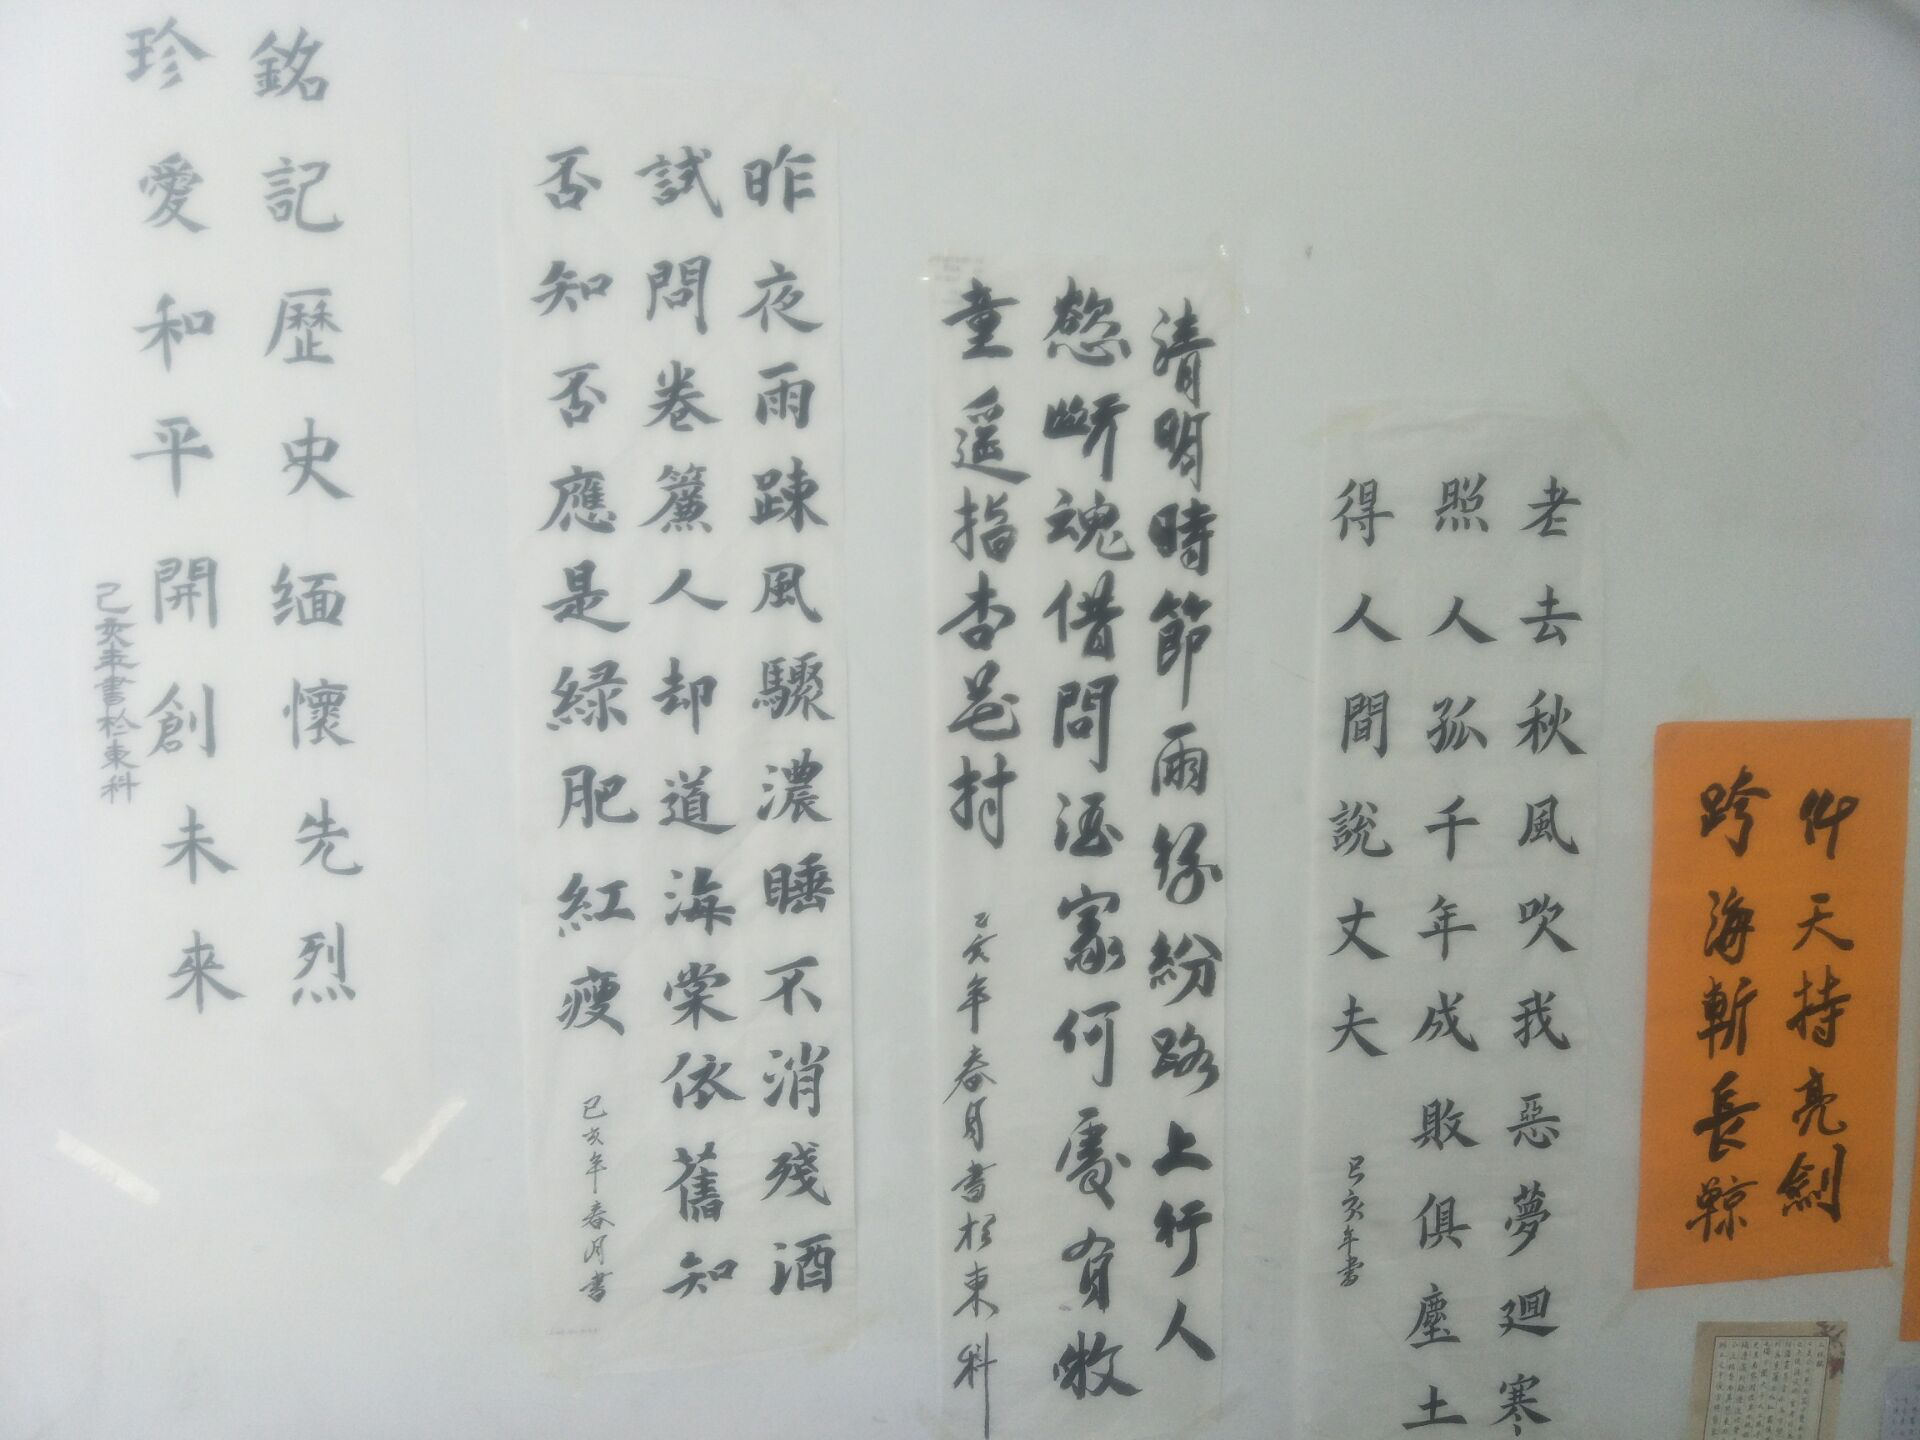 天持亮劍
跨海斬長鯨
老去秋風吹我惡夢廻寒
照人孤千年成敗俱塵土
得人間說丈夫
己亥年書
清明時節雨紛紛路上行人
慾断魂借問酒家何處有牧
童遥指杏花村
己亥年春月書於東科
昨夜雨踈風驟濃睡不消殘酒
試問卷簾人却道海棠依舊知
否知否應是緑肥紅瘦
己亥年春月書
銘記歷史缅懷先烈
珍愛和平開創未來
己亥年書於東科